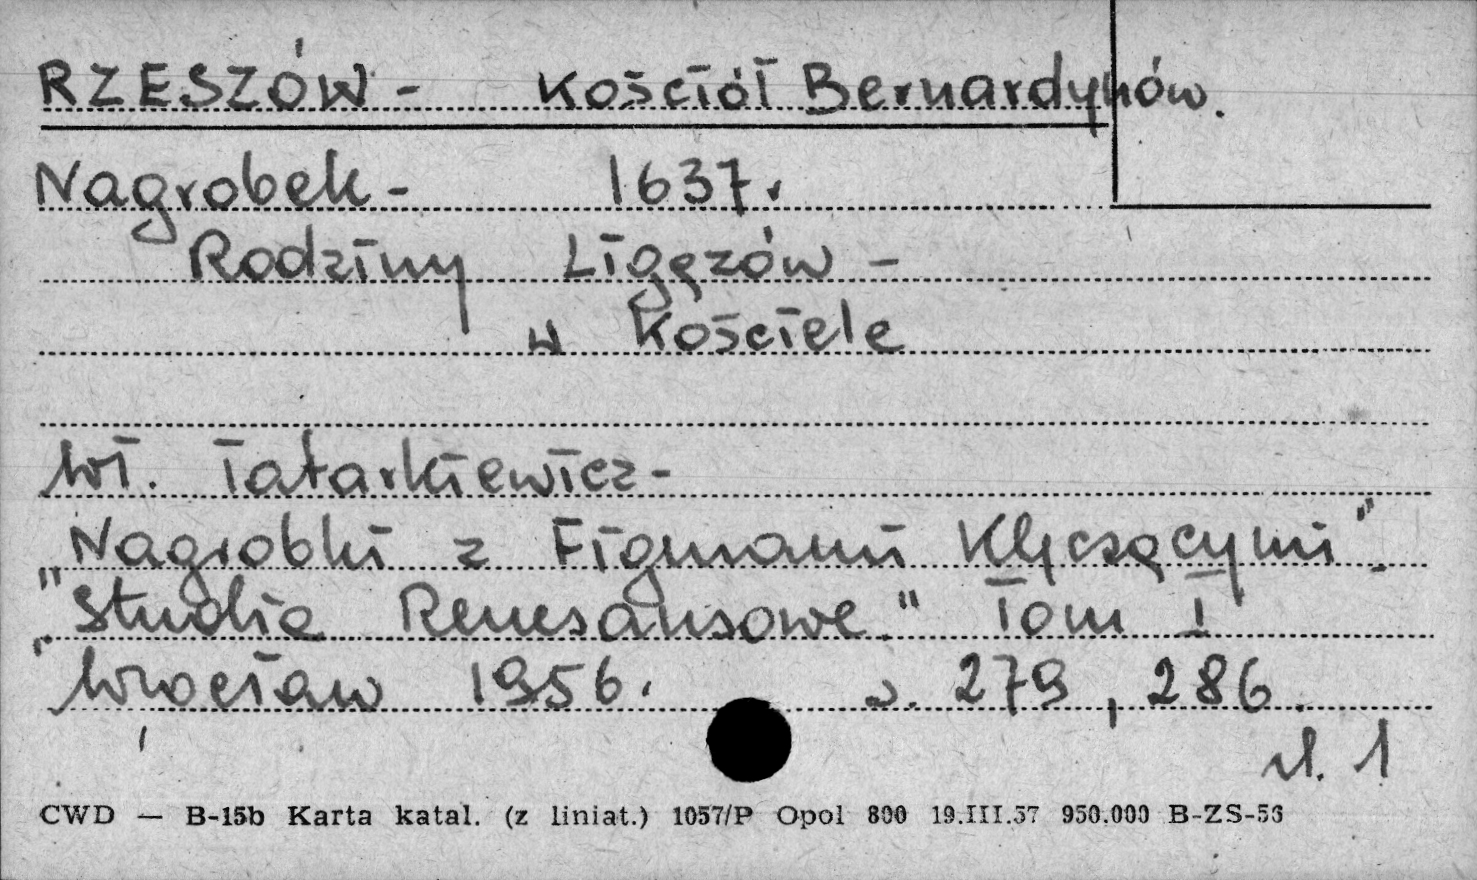 RZESZÓW - Kościół Bernardynów.
Nagrobek - 1637.
Rodziny Ligęzów -
w Kościele
Wł. Tatarkiewicz -
"Nagrobki z Figurami Klęczącymi".
"Studia Renesansowe." Tom I
Wrocław 1956. s. 279, 286.
il. 1
CWD — B-15b Karta katal. (z liniat.) 1057/P Opol 800 19.III.57 950.000 B-ZS-56